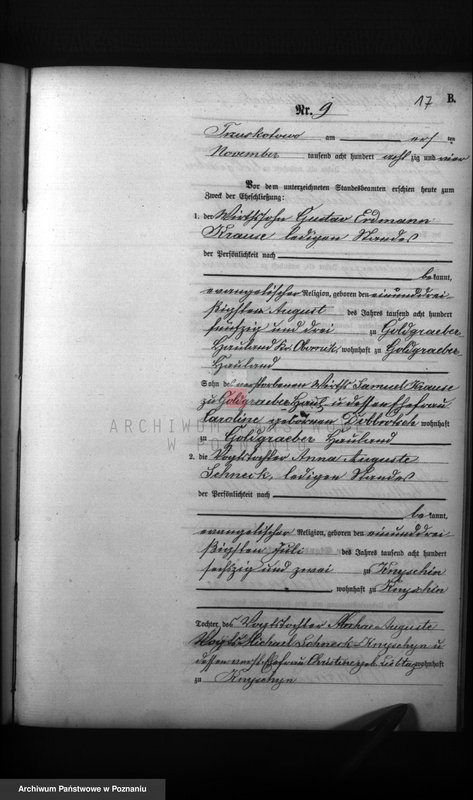 17 B.
Nr. 9
am ten
November tausend acht hundert acht zig und vier
Vor dem unterzeichneten Standesbeamten erschien heute zum
Zweck der Eheschließung:
1. der Wirthssohn Gustav Erdmann
Krause ledigen Standes
der Persönlichkeit nach
be kannt,
evangelischer Religion, geboren den einunddrei-
ßigsten August des Jahres tausend acht hundert
fünfzig und drei zu Goldgraeber
Hauland Kr. Obornik, wohnhaft zu Goldgraeber
Hauland
Sohn des verstorbenen Wirths Samuel Krause
zu Goldgraeber Haul. u dessen Ehefrau
Caroline geborenen wohnhaft
zu Goldgraeber Hauland
2. die Vogtstochter Anna Auguste
Schneck, ledigen Standes
der Persönlichkeit nach
be kannt,
evangelischer Religion, geboren den einunddrei-
ßigsten Juli des Jahres tausend acht hundert
sechszig und zwei zu Knyschin
, wohnhaft zu Knyschin
Tochter des Auguste
Vogts Michael Schneck Knyschyn u
dessen Ehefrau Christine geb. wohnhaft
zu Knyschyn
ARCHIWUM PAŃSTWOWE
W POZNANIU
Archiwum Państwowe w Poznaniu